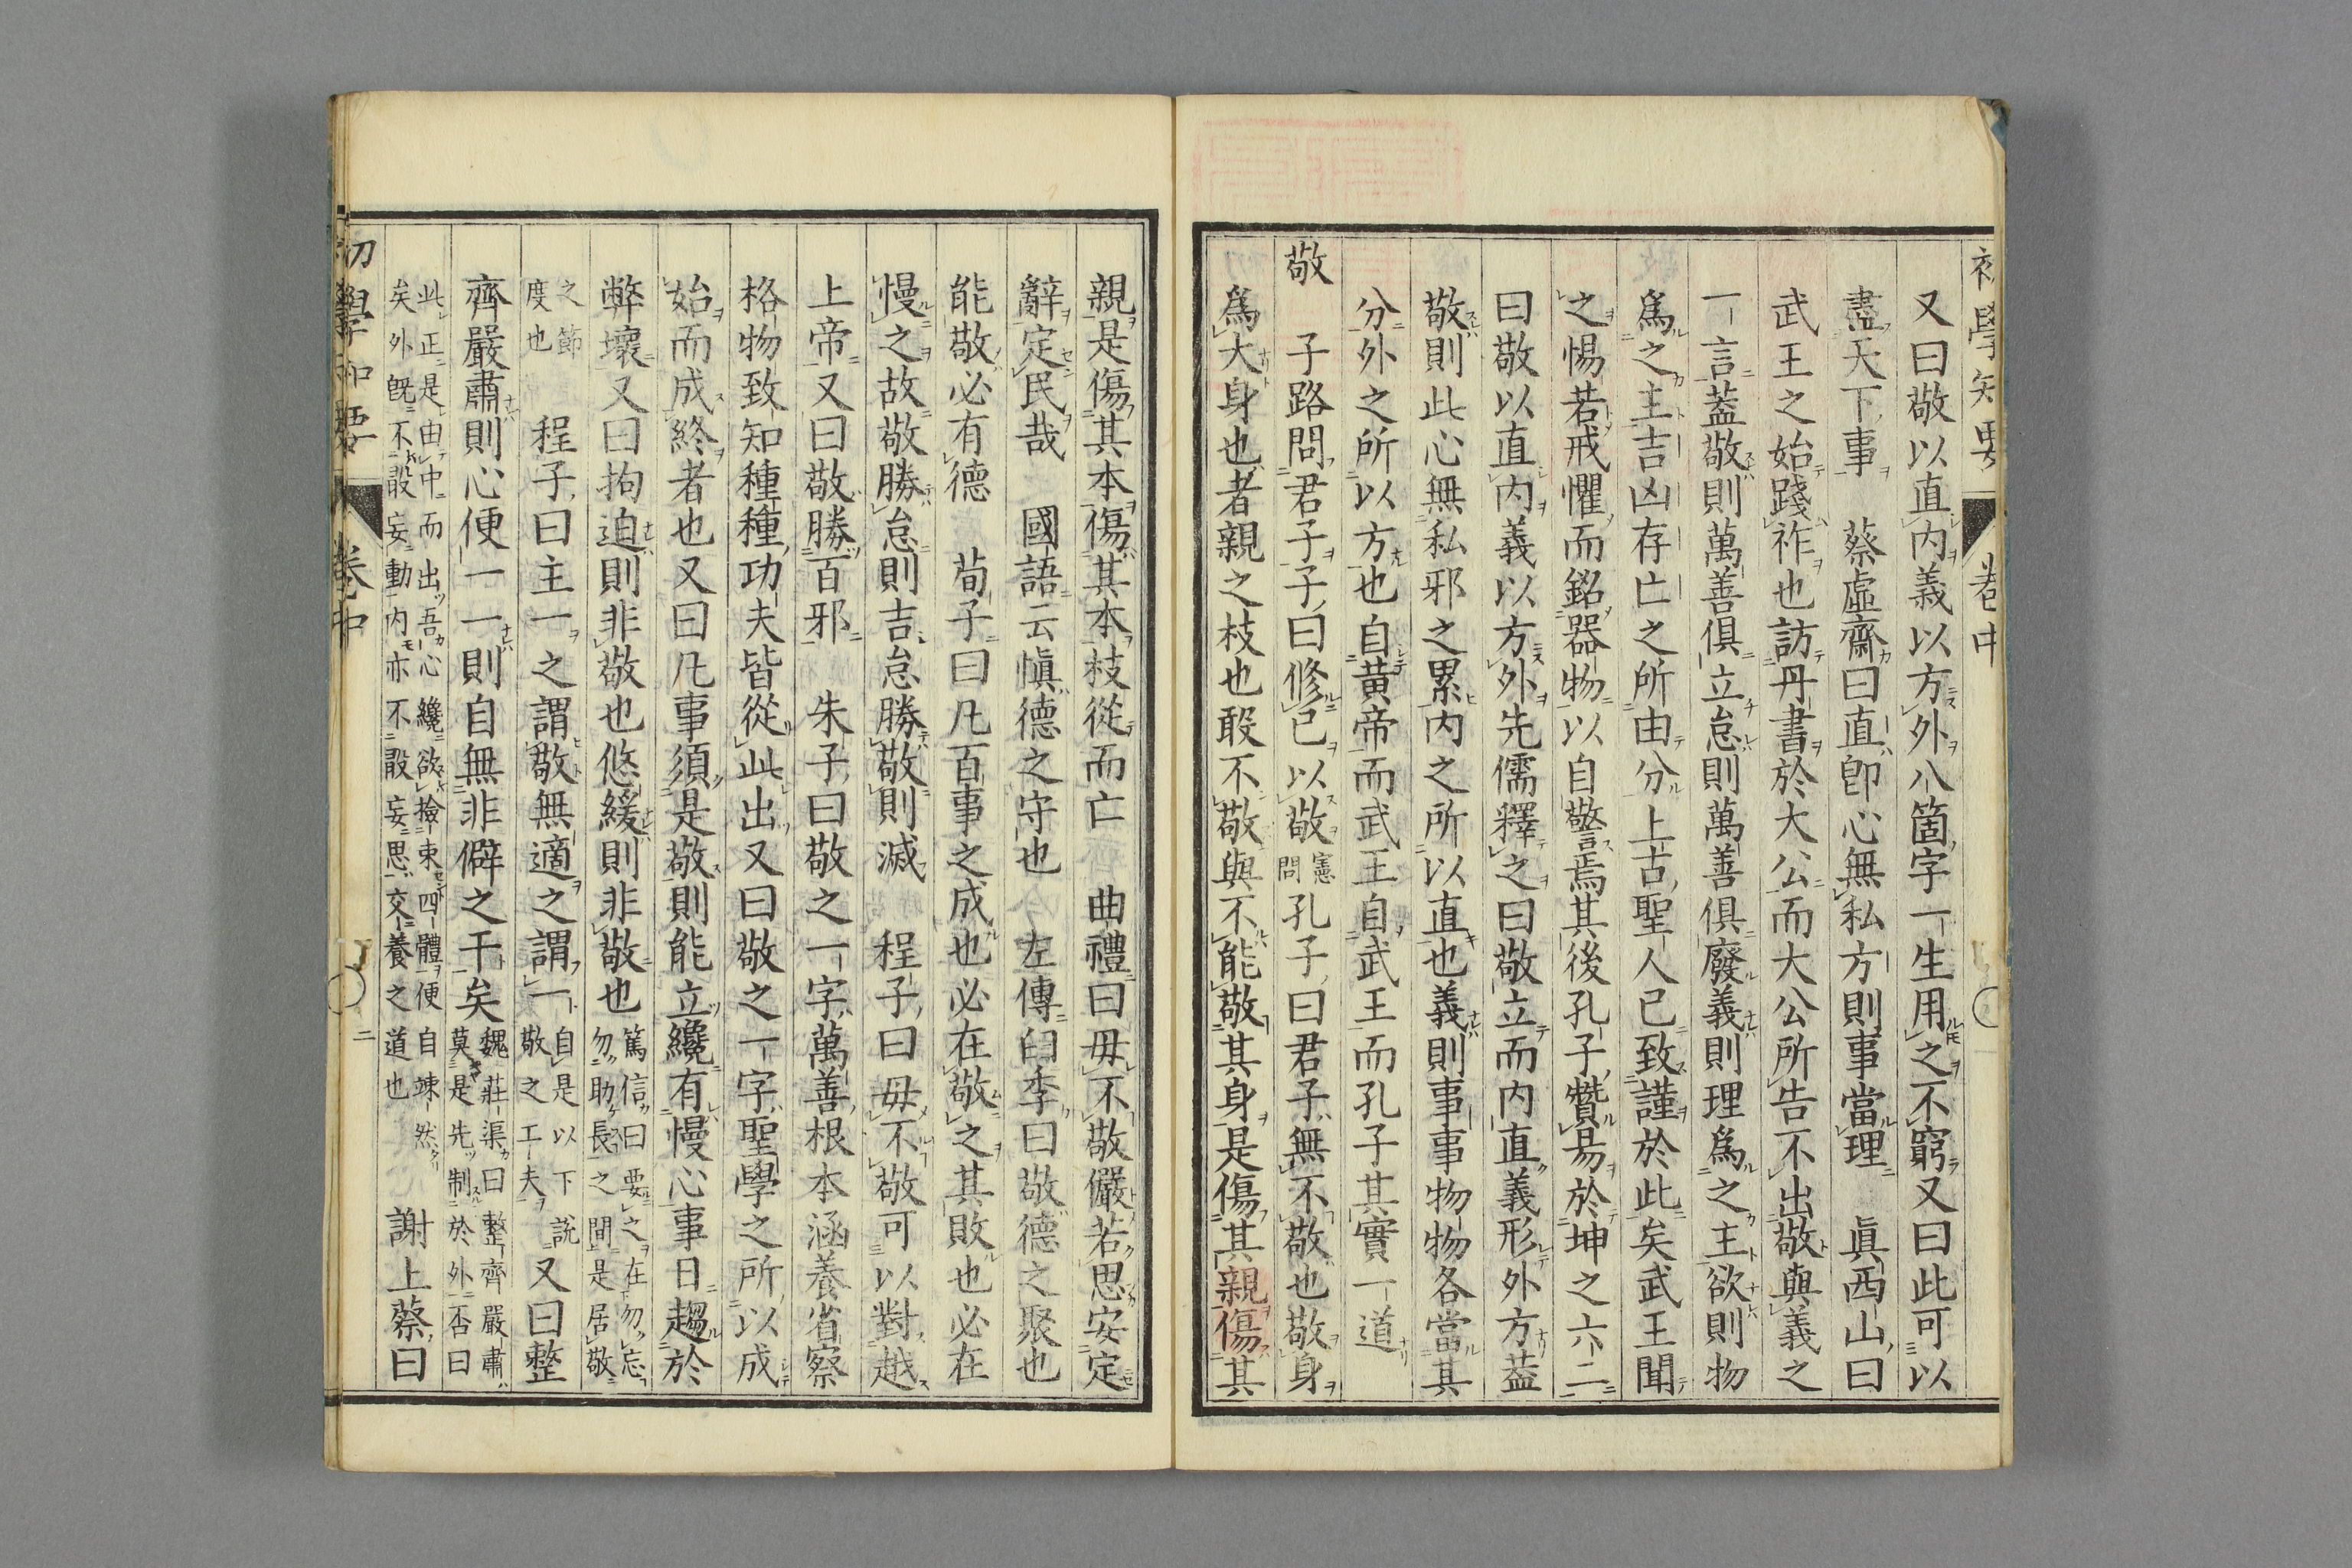 又曰敬以直内義以方外八箇字一生用之不窮又曰此可以
盡天下事 蔡虛齋曰直即心無私方則事當理 眞西山曰
武王之始踐祚也訪丹書於大公而大公所告不出敬與義之
一言蓋敬則萬善俱立怠則萬善俱廢義則理爲之主欲則物
爲之主吉凶存亡之所由分上古聖人已致謹於此矣武王聞
之惕若戒懼而銘器物以自警焉其後孔子贊易於坤之六二
曰敬以直内義以方外先儒釋之曰敬立而内直義形外方蓋
敬則此心無私邪之累内之所以直也義則事事物物各當其
分外之所以方也自黄帝而武王自武王而孔子其實一道
敬 子路問君子子曰修己以敬憲問孔子曰君子無不敬也敬身
爲大身也者親之枝也敢不敬與不能敬其身是傷其親傷其
親是傷其本傷其本枝從而亡 曲禮曰毋不敬儼若思安定
辭定民哉 國語云愼德之守也 左傳臼季曰敬德之聚也
能敬必有德 荀子曰凡百事之成也必在敬之其敗也必在
慢之故敬勝怠則吉怠勝敬則滅 程子曰毋不敬可以對越
上帝又曰敬勝百邪 朱子曰敬之一字萬善根本涵養省察
格物致知種種功夫皆從此出又曰敬之一字聖學之所以成
始而成終者也又曰凡事須是敬則能立纔有慢心事日趨於
弊壞又曰拘迫則非敬也悠緩則非敬也篤信曰要之在勿忘勿助長之間是居敬
之節度也 程子曰主一之謂敬無適之謂一自是以下説敬之工夫又曰整
齊嚴肅則心便一一則自無非僻之干矣魏莊渠曰整齊嚴肅莫是先制於外否曰
此正是由中而出吾心纔欲撿束四體便自竦然矣外旣不敢妄動内亦不敢妄思交養之道也 謝上蔡曰
卷中
卷中
二